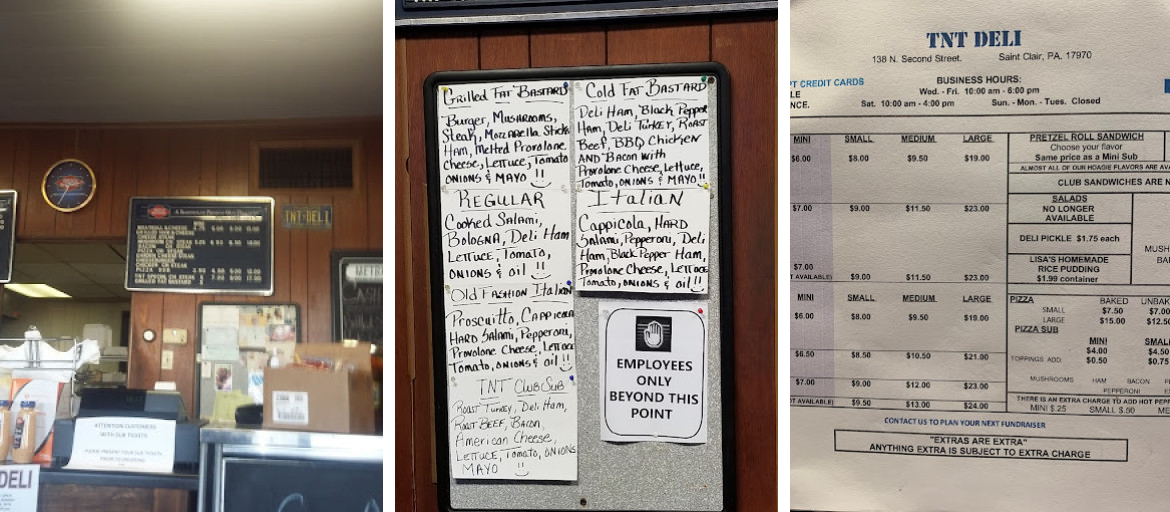 TNT-DELI
METRO
ATTENTION CUSTOMERS
WITH SUB TICKETS
DELI
Grilled FAT BASTARD
Burger, Mushrooms,
Steak, Mozzarella Sticks
Ham, Melted Provolone
Cheese, Lettuce, Tomato
ONIONS & MAYO !!
REGULAR
Cooked Salami,
Bologna, Deli Ham
Lettuce, Tomato,
ONIONS & oil !!
Old Fashion Italian
Proscuitto, Cappicola
HARD Salami, Pepperoni,
Provolone Cheese, Lettuce
Tomato, ONIONS & oil !!
TNT Club Sub
Roast Turkey, Deli Ham,
Roast BEEF, Bacon,
American Cheese,
Lettuce, Tomato, ONIONS
MAYO !!
Cold FAT BASTARD
Deli Ham, Black Pepper
Ham, Deli Turkey, Roast
Beef, BBQ Chicken
AND Bacon with
Provolone Cheese, Lettuce,
Tomato, ONIONS & MAYO!!
Italian
Cappicola, HARD
Salami, Pepperoni, Deli
Ham, Black Pepper Ham,
Provolone Cheese, Lettuce
Tomato, ONIONS & oil!!
EMPLOYEES
ONLY
BEYOND THIS
POINT
TNT DELI
138 N. Second Street. Saint Clair, PA. 17970
PT CREDIT CARDS
LE
NCE.
BUSINESS HOURS:
Wed. - Fri. 10:00 am - 6:00 pm
Sat. 10:00 am - 4:00 pm Sun. - Mon. - Tues. Closed
MINI SMALL MEDIUM LARGE
$6.00 $8.00 $9.50 $19.00
$7.00 $9.00 $11.50 $23.00
$7.00
T AVAILABLE) $9.00 $11.50 $23.00
MINI SMALL MEDIUM LARGE
$6.00 $8.00 $9.50 $19.00
$6.50 $8.50 $10.50 $21.00
$7.00 $9.00 $12.00 $23.00
T AVAILABLE) $9.50 $13.00 $24.00
PRETZEL ROLL SANDWICH
Choose your flavor
Same price as a Mini Sub
ALMOST ALL OF OUR HOAGIE FLAVORS ARE AVA
CLUB SANDWICHES ARE N
SALADS
NO LONGER
AVAILABLE
DELI PICKLE $1.75 each
MUSH
BA
LISA'S HOMEMADE
RICE PUDDING
$1.99 container
PIZZA BAKED UNBAK
SMALL $7.50 $7.00
LARGE $15.00 $12.50
PIZZA SUB
MINI SMAL
$4.00 $4.50
TOPPINGS ADD $0.50 $0.75
MUSHROOMS HAM BACON PE
PEPPERONI E
THERE IS AN EXTRA CHARGE TO ADD HOT PEP
MINI $.25 SMALL $.50 ME
CONTACT US TO PLAN YOUR NEXT FUNDRAISER
"EXTRAS ARE EXTRA"
ANYTHING EXTRA IS SUBJECT TO EXTRA CHARGE